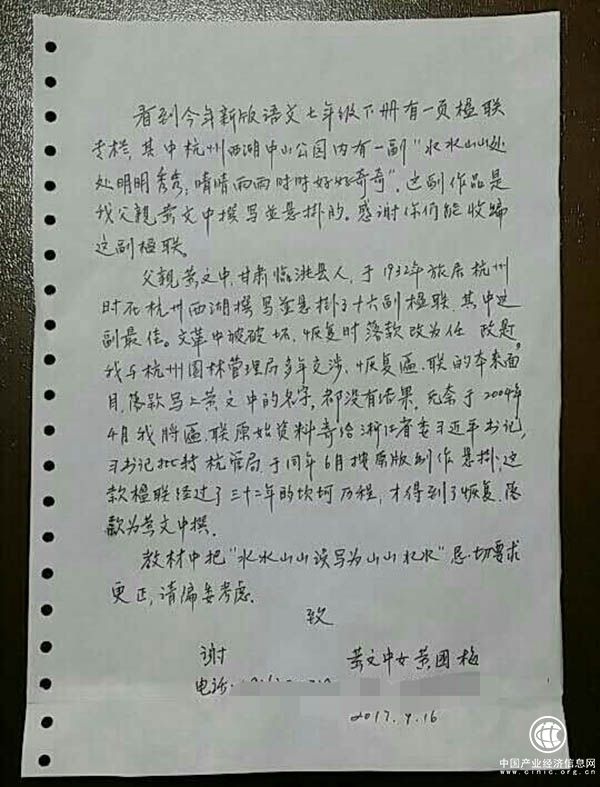 看到今年新版语文七年级下册有一页楹联
专栏,其中杭州西湖中山公园内有一副"水水山山处
处明明秀秀,晴晴雨雨时时好好奇奇",这副作品是
我父親黄文中撰写並悬掛的。感谢你们能收编
这副楹联。
父親黄文中,甘肃临洮县人,于1932年旅居杭州
时在杭州西湖撰写並悬掛了十六副楹联,其中这
副最佳。文革中被破坏,恢复时落款改为任 政是。
我与杭州园林管理局多年交涉,恢复匾、联的本来面
目,落款写上黄文中的名字,都没有结果,无奈于2004年
4月我将匾、联原始资料寄给浙江省委习近平书记,
习书记批转杭管局,于同年6月按原版制作悬掛,这
款楹联经过了三十二年的坎坷历程,才得到了恢复,落
款为黄文中撰.
教材中把"水水山山误写为山山水水"恳切要求
更正,请编委考虑.
致
谢 黄文中女黄国梅
电话:
2017.4.16
中国产业经济信息网
www.cinic.org.cn